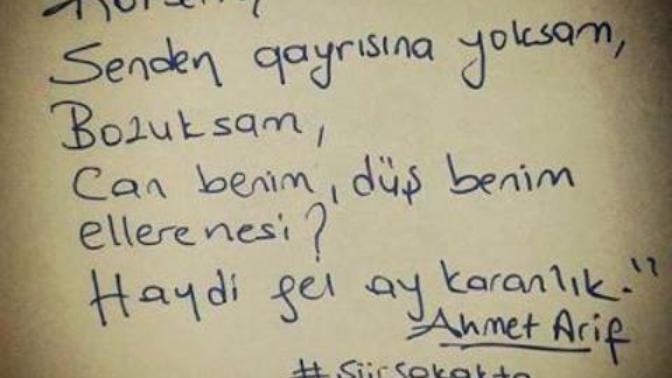 Senden qayrısına yoksam,
Bozuksam,
Can benim, düş benim
ellere nesi?
Haydi gel ay karanlık."
Ahmet Arif
#Şiirsokakta